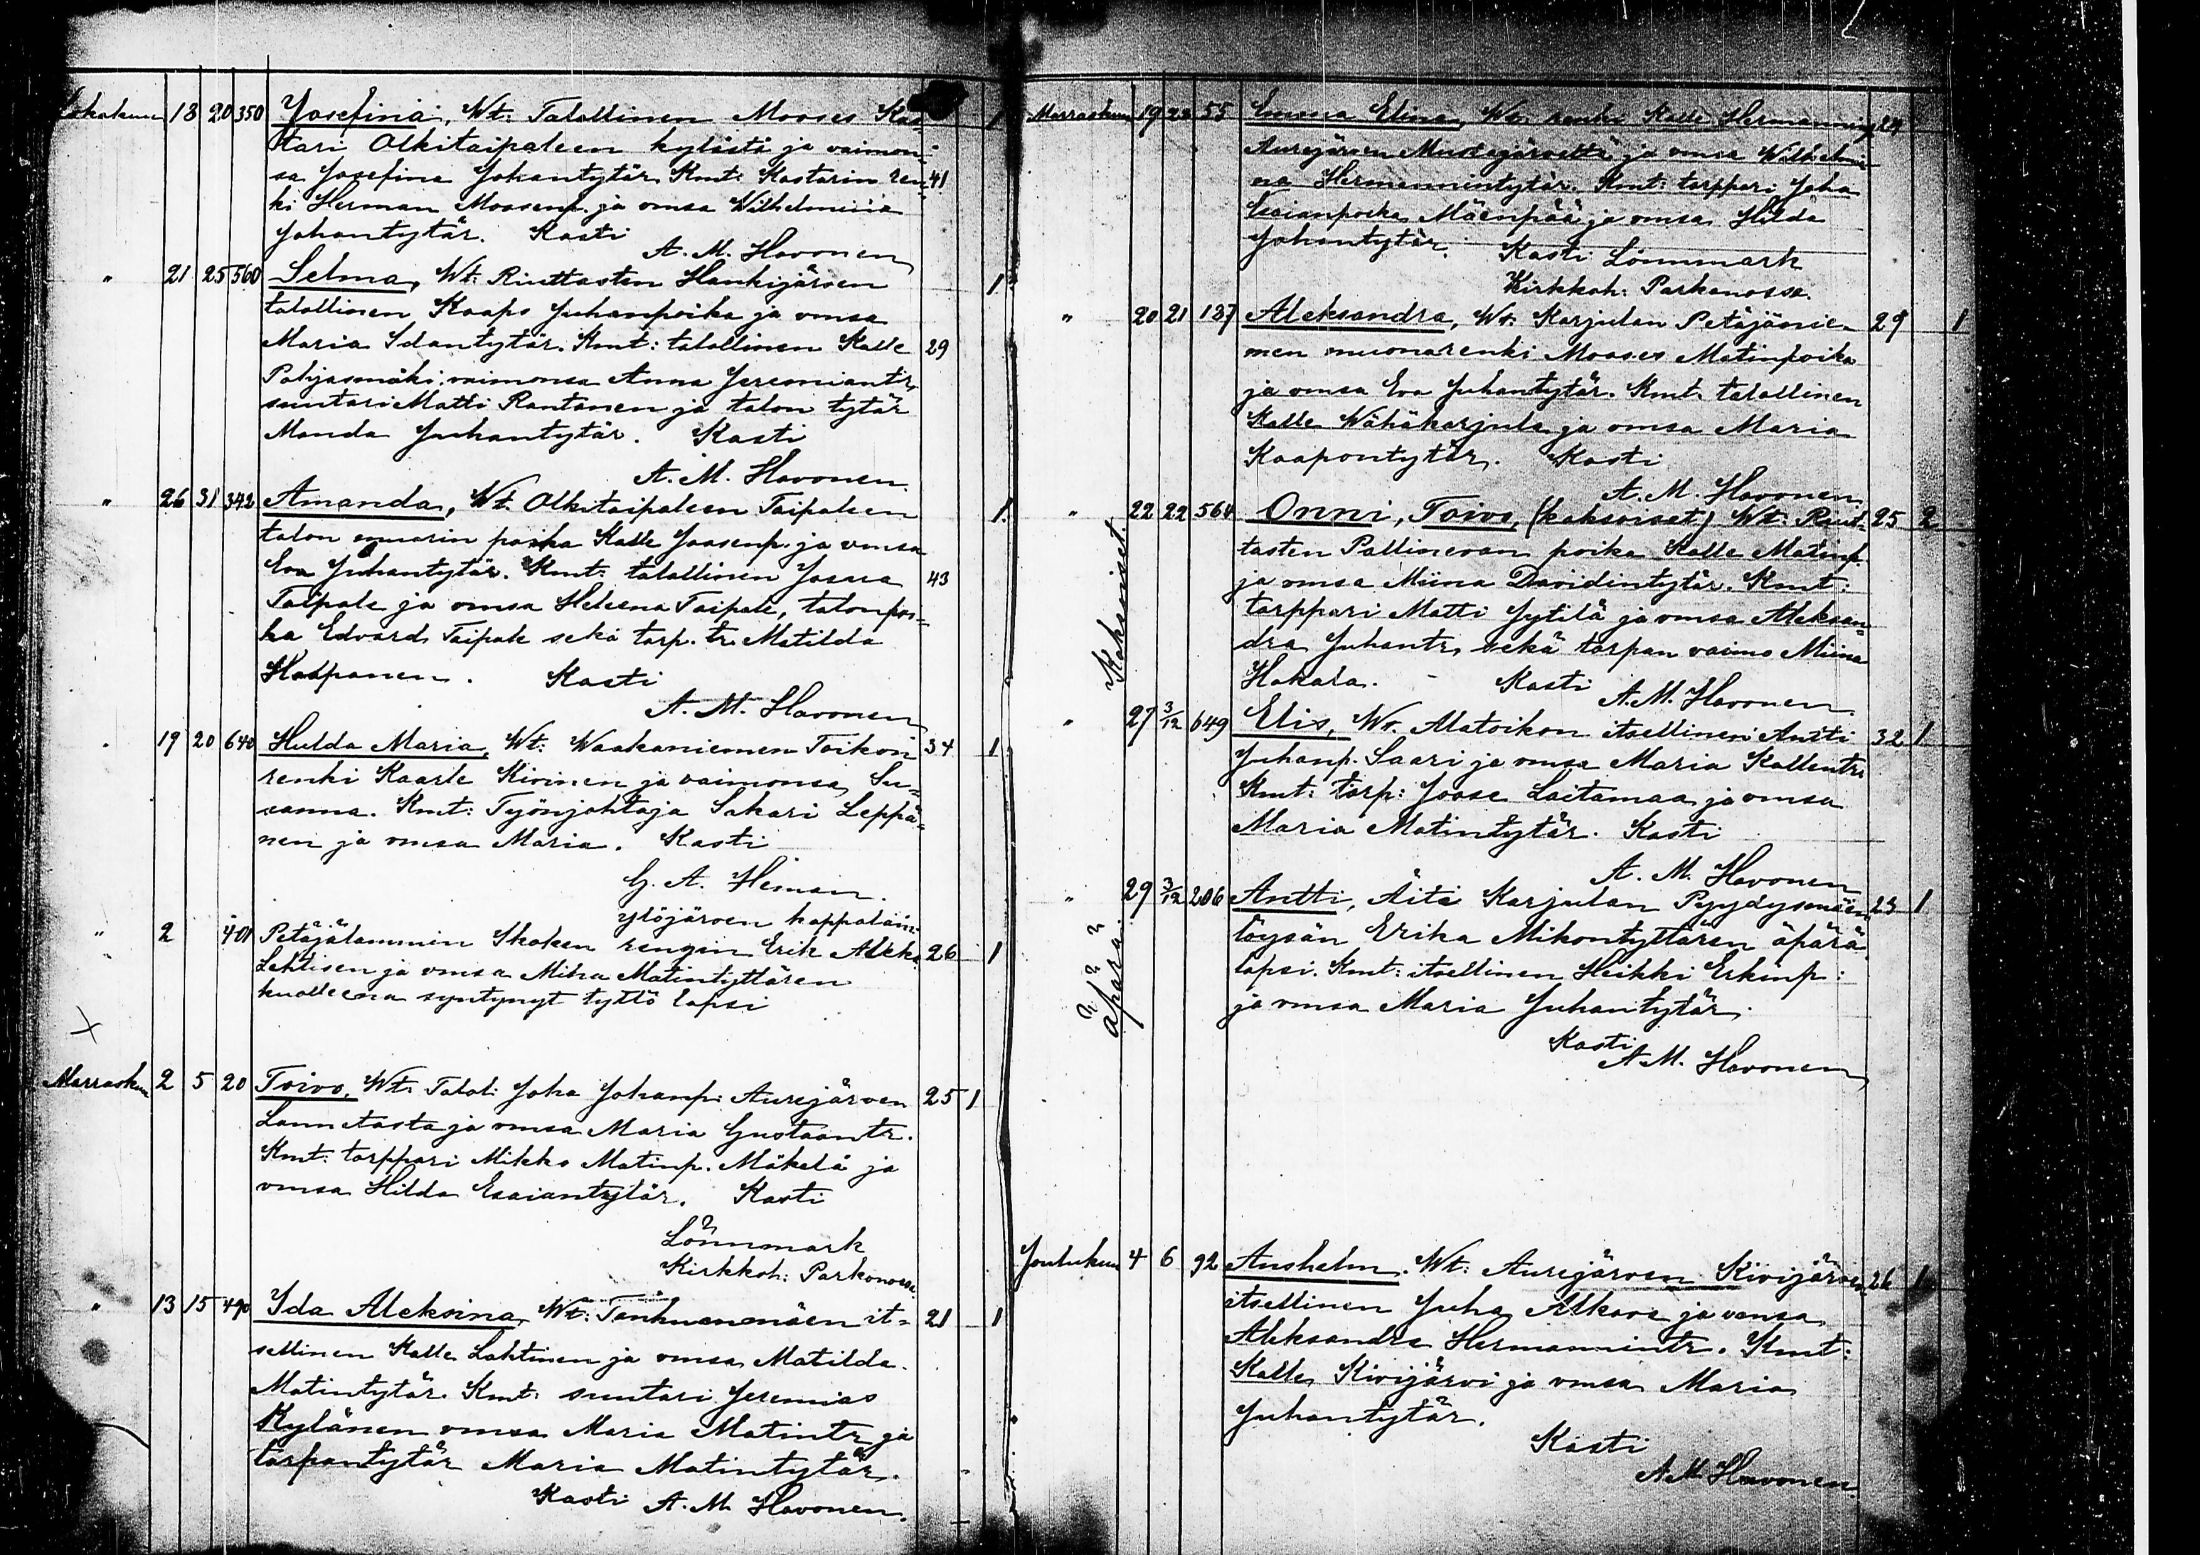 Lokakuu 18 20 350 Josefina, Wt: Talollinen Mooses Kas- 1
tari Olkitaipaleen kylästä ja vaimon-
sa Josefina Johantytär. Kmt: Kastarin ren- 41
ki Herman Moosenp. ja vmsa Wilhelmiina
Johantytär. Kasti
A. M. Havonen
" 21 25 560 Selma, Wt: Riuttasten Hankijärven 1
talollinen Kaapo Juhanpoika ja vmsa
Maria Idantytär. Kmt: talollinen Kalle 29
Pohjasmäki vaimonsa Anna Jeremiantr,
suntari Matti Rantanen ja talon tytär
Manda Juhantytär. Kasti
A. M. Havonen.
" 26 31 342 Amanda, Wt. Olkitaipaleen Taipaleen 1.
talon muorin poika Kalle Joosenp. ja vmsa
Eva Juhantytär. Kmt: talollinen Joosua 43
Taipale ja vmsa Heleena Taipale, talonpoi-
ka Edvard Taipale sekä torp. tr. Matilda
Haapanen. Kasti
A. M. Havonen
" 19 20 640 Hulda Maria, Wt: Waakaniemen Toikon 34 1
renki Kaarle Kivinen ja vaimonsa Su-
sanna. Kmt: Työnjohtaja Sakari Leppä-
nen ja vmsa Maria. Kasti
G. A. Heman.
Ylöjärven kappalain.
" 2 401 Petäjälammin Skaken rengin Erik Aleks. 26 1
Lehtisen ja vmsa Miina Matintyttären
kuolleena syntynyt tyttö lapsi
X
Marraskuu 2 5 20 Toivo, Wt: Talol: Joha Johanp: Aurejärven 25 1
Lannetasta ja vmsa Maria Gustaantr.
Kmt: torppari Mikko Matinp. Mäkelä ja
vmsa Hilda Esaiantytär. Kasti
Lönnmark
Kirkkoh: Parkanossa.
" 13 15 490 Ida Aleksina, Wt: Tanhuanmäen it- 21 1
sellinen Kalle Lahtinen ja vmsa Matilda
Matintytär. Kmt: suntari Jeremias
Kylänen vmsa Maria Matintr ja
torpantytär Maria Matintytär.
Kasti A. M. Havonen.
Marraskuu 19 22 55 Emma Elina, Wt: renki Kalle Hermanninp 24
Aurejärven Mustajärveltä ja vmsa Wilhelmii-
na Hermannintytär. Kmt: torppari Joha
Esaianpoika Mäenpää ja vmsa Hilda
Johantytär. Kasti Lönnmark
Kirkkoh: Parkanossa.
" 20 21 137 Aleksandra, Wt. Karjulan Petäjänie- 29 1
men muonarenki Mooses Matinpoika
ja vmsa Eva Juhantytär. Kmt. talollinen
Kalle Wähäkarjula ja vmsa Maria
Kaapontytär. Kasti
A. M. Havonen
Kaksoiset. " 22 22 564 Onni, Toivo, (kaksoiset) Wt: Riut- 25 2
tasten Pallinevan poika Kalle Matinp.
ja vmsa Miina Davidintytär. Kmt:
torppari Matti Jytilä ja vmsa Aleksan-
dra Juhantr, sekä torpan vaimo Miina
Hakala. Kasti A. M. Havonen.
" 27 3/12 649 Elis, Wt. Alatoikon itsellinen Antti 32 1
Juhanp. Saari ja vmsa Maria Kallentr.
Kmt: torp: Joose Laitamaa ja vmsa
Maria Matintytär. Kasti
A. M. Havonen
äpärä. " 29 3/12 206 Antti, Äiti Karjulan Pyydysmäen 23 1
löysän Erika Mikontyttären äpärä
lapsi. Kmt: itsellinen Heikki Erkinp:
ja vmsa Maria Juhantytär.
Kasti
A. M. Havonen
Joulukuu 4 6 92 Anshelm. Wt: Aurejärven Kivijärven 26 1
itsellinen Juha Alkava ja vmsa
Aleksandra Hermannintr. Kmt:
Kalle Kivijärvi ja vmsa Maria
Juhantytär.
Kasti
A. M. Havonen.